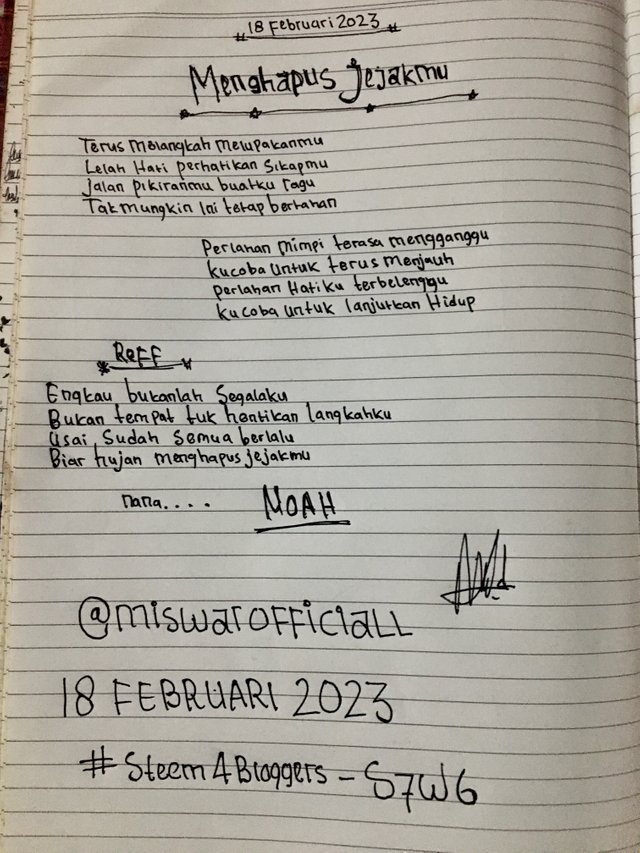 # 18 Februari 2023 #
Menghapus Jejakmu
Terus Melangkah melupakanmu
Lelah Hati perhatikan Sikapmu
Jalan pikiranmu buatku ragu
Tak mungkin Ini tetap bertahan
Perlahan mimpi terasa mengganggu
kucoba untuk terus Menjauh
perlahan Hatiku terbelenggu
kucoba untuk lanjutkan Hidup
Reff
Engkau bukanlah Segalaku
Bukan tempat tuk hentikan langkahku
Usai Sudah Semua berlalu
Biar hujan menghapus jejakmu
nana.... NOAH
@miswarofficiall
18 FEBRUARI 2023
# Steem4Bloggers - S7W6